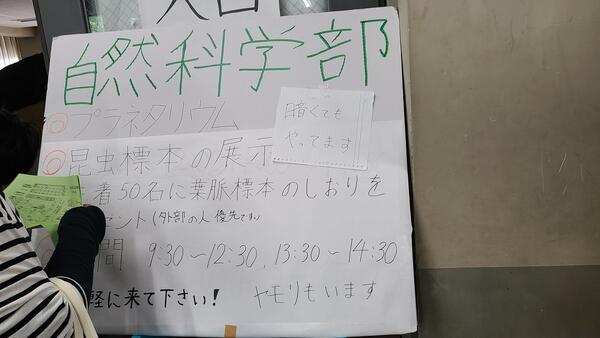 入口
自然科学部
◎プラネタリウム
◎昆虫標本の展示
暗くても
やってます
着50名に葉脈標本のしおりを
ント(外部の人優先です。)
間 9:30～12:30, 13:30～14:30
軽に来て下さい! ヤモリもいます